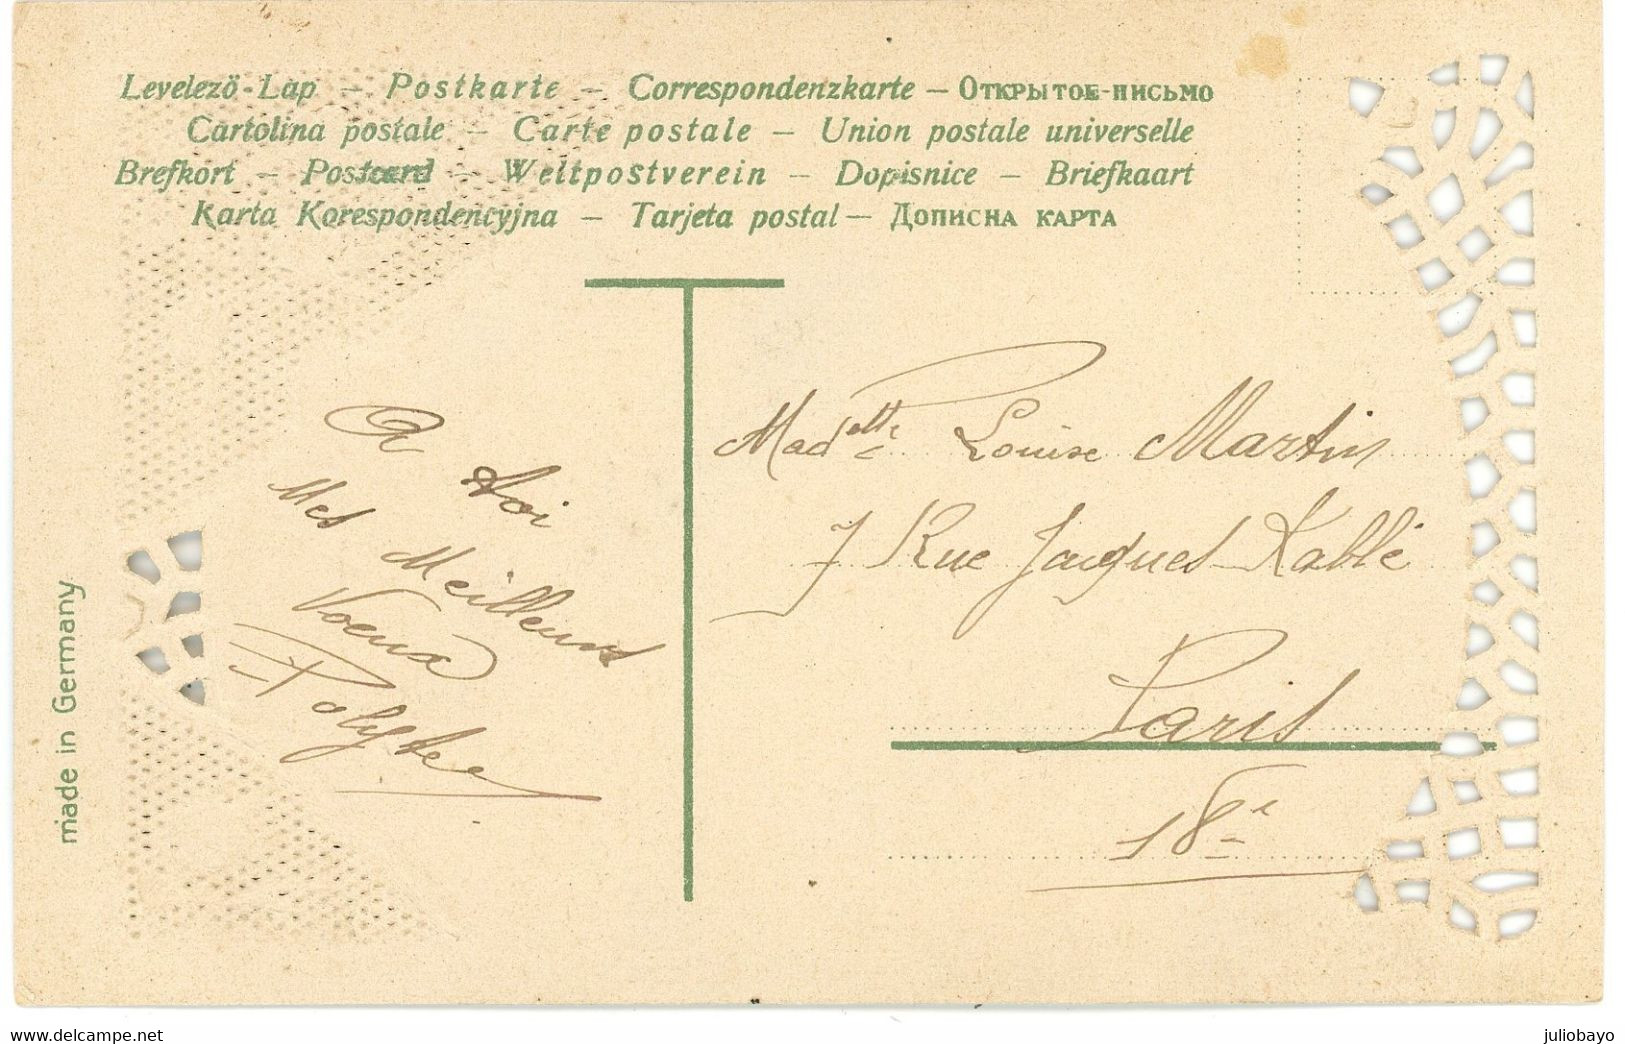 Levelező-Lap – Postkarte – Correspondenzkarte – Открытое-письмо
Cartolina postale – Carte postale – Union postale universelle
Brefkort – Postcard – Weltpostverein – Dopisnice – Briefkaart
Karta Korespondencyjna – Tarjeta postal – Дописна карта
A toi
Mes Meilleurs
Voeux
Madelle Louise Martin
7 Rue Jacques Kablé
Paris
18e
made in Germany
https://www.delcampe.net
juliobayo